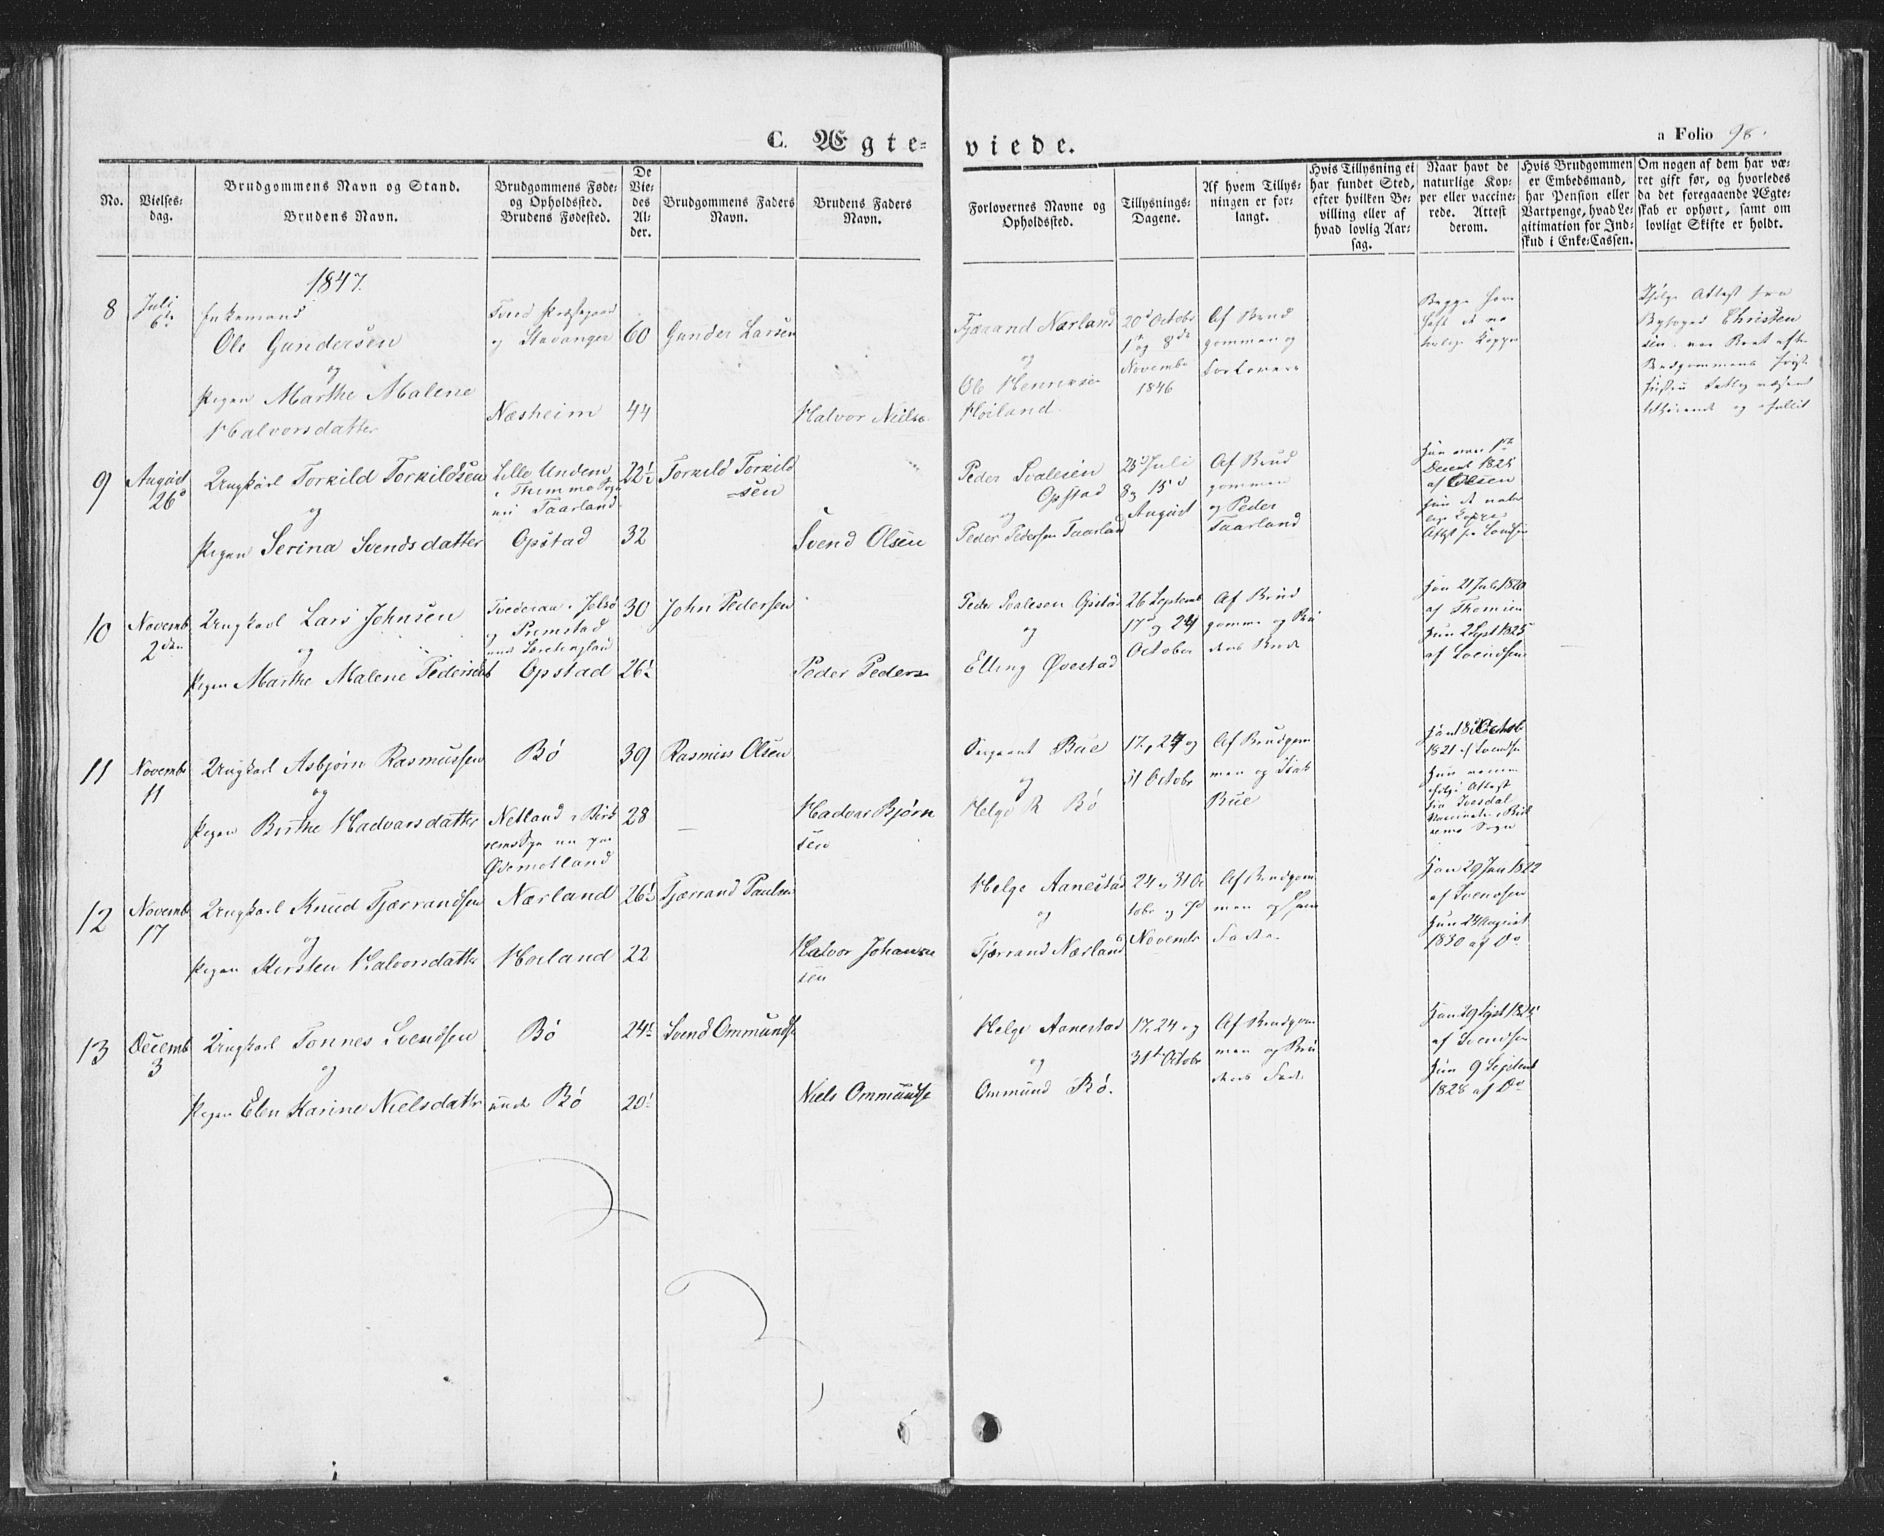 C. Ægte-
viede.
a Folio 98.
No.
Vielses-
dag.
Brudgommens Navn og Stand.
Brudens Navn.
Brudgommens Føde-
og Opholdssted.
Brudens Fødested.
De
Vie-
des
Al-
der.
Brudgommens Faders
Navn.
Brudens Faders
Navn.
Forlovernes Navne og
Opholdssted.
Tillysnings-
Dagene.
Af hvem Tillys-
ningen er for-
langt.
Hvis Tillysning ei
har fundet Sted,
efter hvilken Be-
villing eller af
hvad lovlig Aar-
sag.
Naar havt de
naturlige Kop-
per eller vaccine-
rede. Attest
derom.
Hvis Brudgommen
er Embedsmand,
har Pension eller
Vartpenge, hvad Le-
gitimation for Ind-
skud i Enke-Cassen.
Om nogen af dem har væ-
ret gift før, og hvorledes
da det foregaaende Ægte-
skab er ophørt, samt om
lovligt Skifte er holdt.
1847.
8
Juli
6te
Enkemand
Ole Gundersen
og
Pigen Marthe Malene
Halvorsdatter
og Stavanger
Næsheim
60
44
Gunder Larsen
Halvor Niels
Tjærand Nærland
og
Ole Henriksen
Høiland
20d October
1te og 8de
November
1846
Af Brud
gommen og
Forlovere
Begge have
haft de na
turlige Kopper
Ifølge Attest fra
Byfoged Christen
sen
9
August
26d
Ungkarl Torkild Torkildsen
og
Pigen Serina Svendsdatter
Lille Undem
Taarland
Opstad
22½
32
Torkild Torkild
sen
Svend Olsen
Peder Svalesen
Opstad
og
Peder Pedersen Taarland
25 Juli
8 og 15d
August
Af Brud
gommen
og Peder
Taarland
Decemb 1825
af Olsen
hun de natur
lige Kopper
10
Novemb
2den
Ungkarl Lars Johnsen
og
Pigen Marthe Malene Pedersdat
og Premstad
Opstad
30
26½
John Pedersen
Peder Peders
Peder Svalesen Opstad
og
Elling Øvestad
26 Septemb
17d og 24
October
Af Brud
gomme og Bru
dens Brode
Han 21 Juli 1820
af Thomsen
hun 2 Sept 1825
af Svendsen
11
Novembr
11
Ungkarl Asbjørn Rasmussen
og
Pigen Birthe Hadvarsdatter
Bø
Netland i Birk
Øvrenetland
39
28
Rasmus Olsen
Hadvar Bjørn
sen
Sergeant Bue
og
Helge R Bø
17, 24 og
31 Octobr
Af Brudgom
men og
Bue
1821 af Svendsen
12
Novemb
17
Ungkarl Knud Tjærrandsen
og
Pigen Kirsten Halvorsdatter
Nærland
Høiland
26½
22
Tjærrand Paulsen
Halvor Johannes
sen
Helge Aanestad
og
Tjærrand Nærland
24 og 31 Oc
tobr og 7d
Novembr
Af Brudgom
men og
Fader
Han 29 Jan 1822
af Svendsen
hun 24 August
1830 af Do
13
Decemb
3
Ungkarl Tonnes Svendsen
og
Pigen Elen Karine Nielsdatr
Bø
Bø
24½
20½
Svend Ommunds
Niels Ommunds
Helge Aanestad
og
Ommund Bø.
17, 24 og
31te Octobr
Af Brudgom
men og Bru
dens Fader
Han 29 Sept 1825
af Svendsen
hun 9 Septemb
1828 af Do